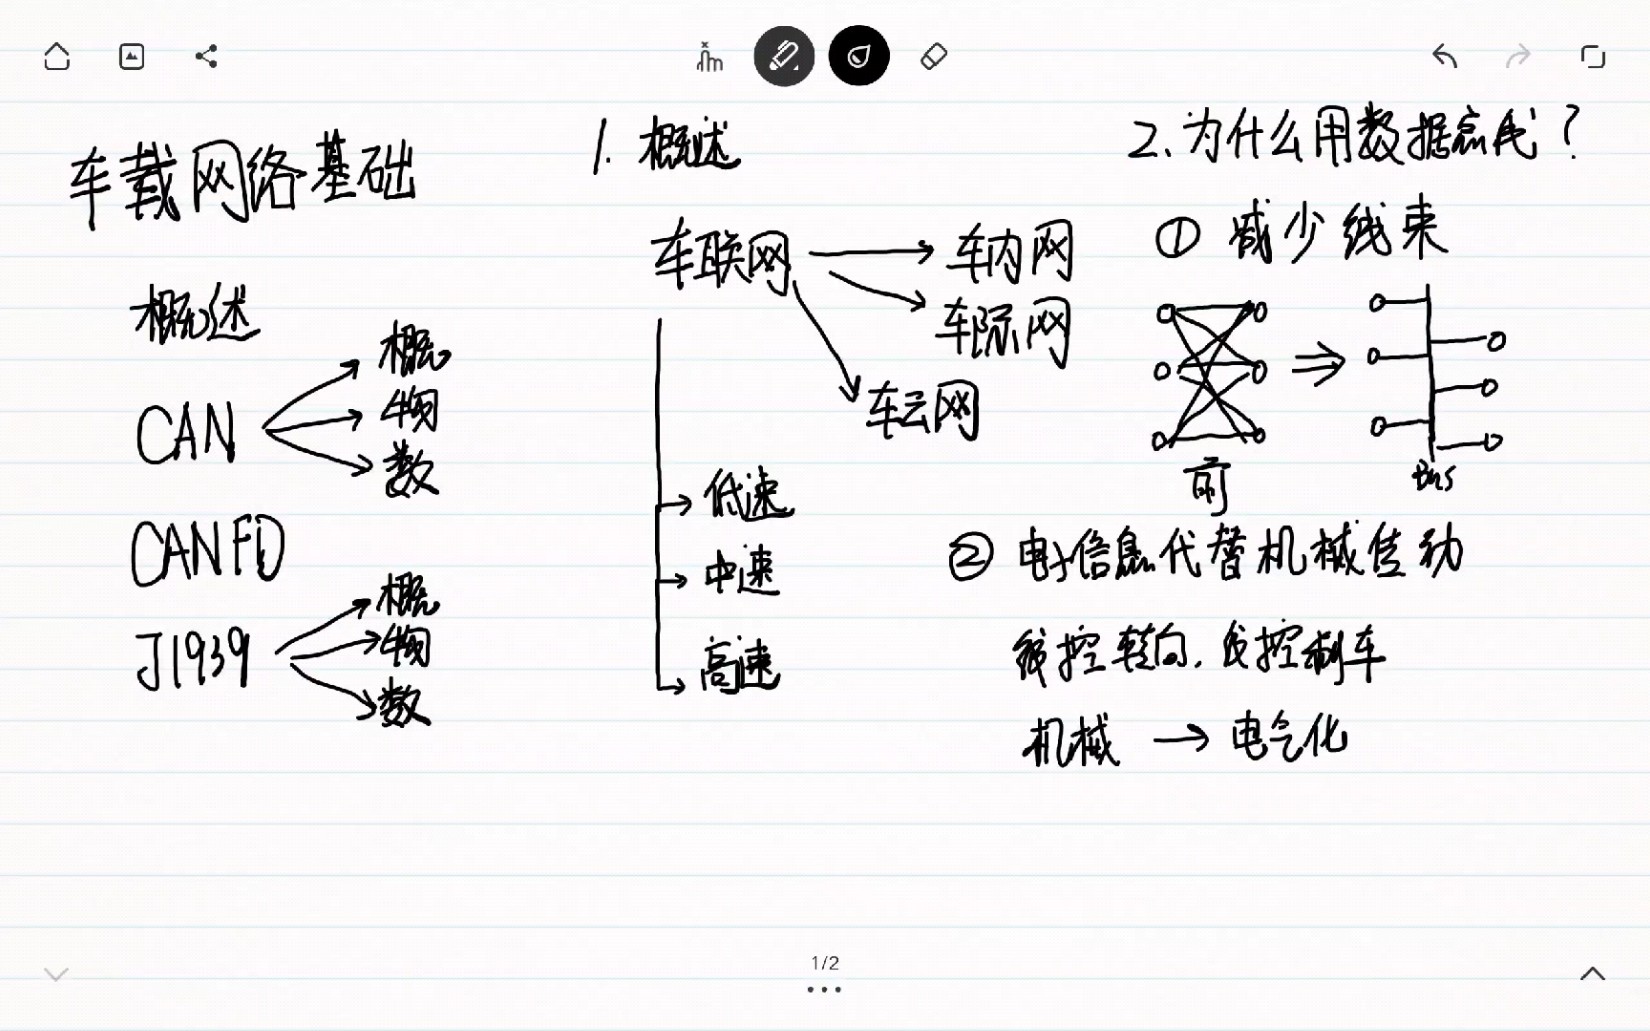 车载网络基础
概述
CAN
概
物
数
CANFD
J1939
概
物
数
1. 概述
车联网
车内网
车际网
车云网
低速
中速
高速
2、为什么用数据总线？
① 减少线束
前
Bus
② 电子信息代替机械传动
线控转向、线控制车
机械 → 电气化
1/2